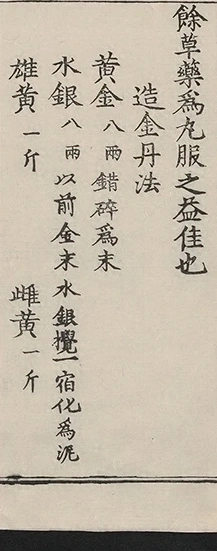 餘草藥爲丸服之益佳也
造金丹法
黃金八兩錯碎爲末
水銀八兩以前金末水銀攪一宿化爲泥
雄黃一斤 雌黃一斤